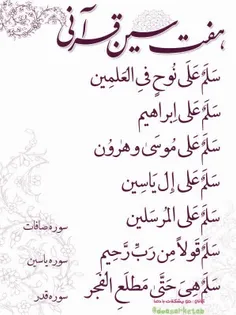 هفت سین قرآنی
سَلَمٌ عَلَى نُوحٍ فِی العَلَمِین
سَلَمٌ عَلَى اِبراهیم
سَلَمٌ عَلَى مُوسَى وهَروُن
سَلَمٌ عَلَى إل یَاسِین
سَلَمٌ عَلَى المُرسَلین
سوره صافات
سَلَمٌ قَولاً مِن رَبِّ رَّحِیم
سوره یاسین
سَلَمٌ هِیَ حَتَّى مَطلَعِ الفَجر
سوره قدر